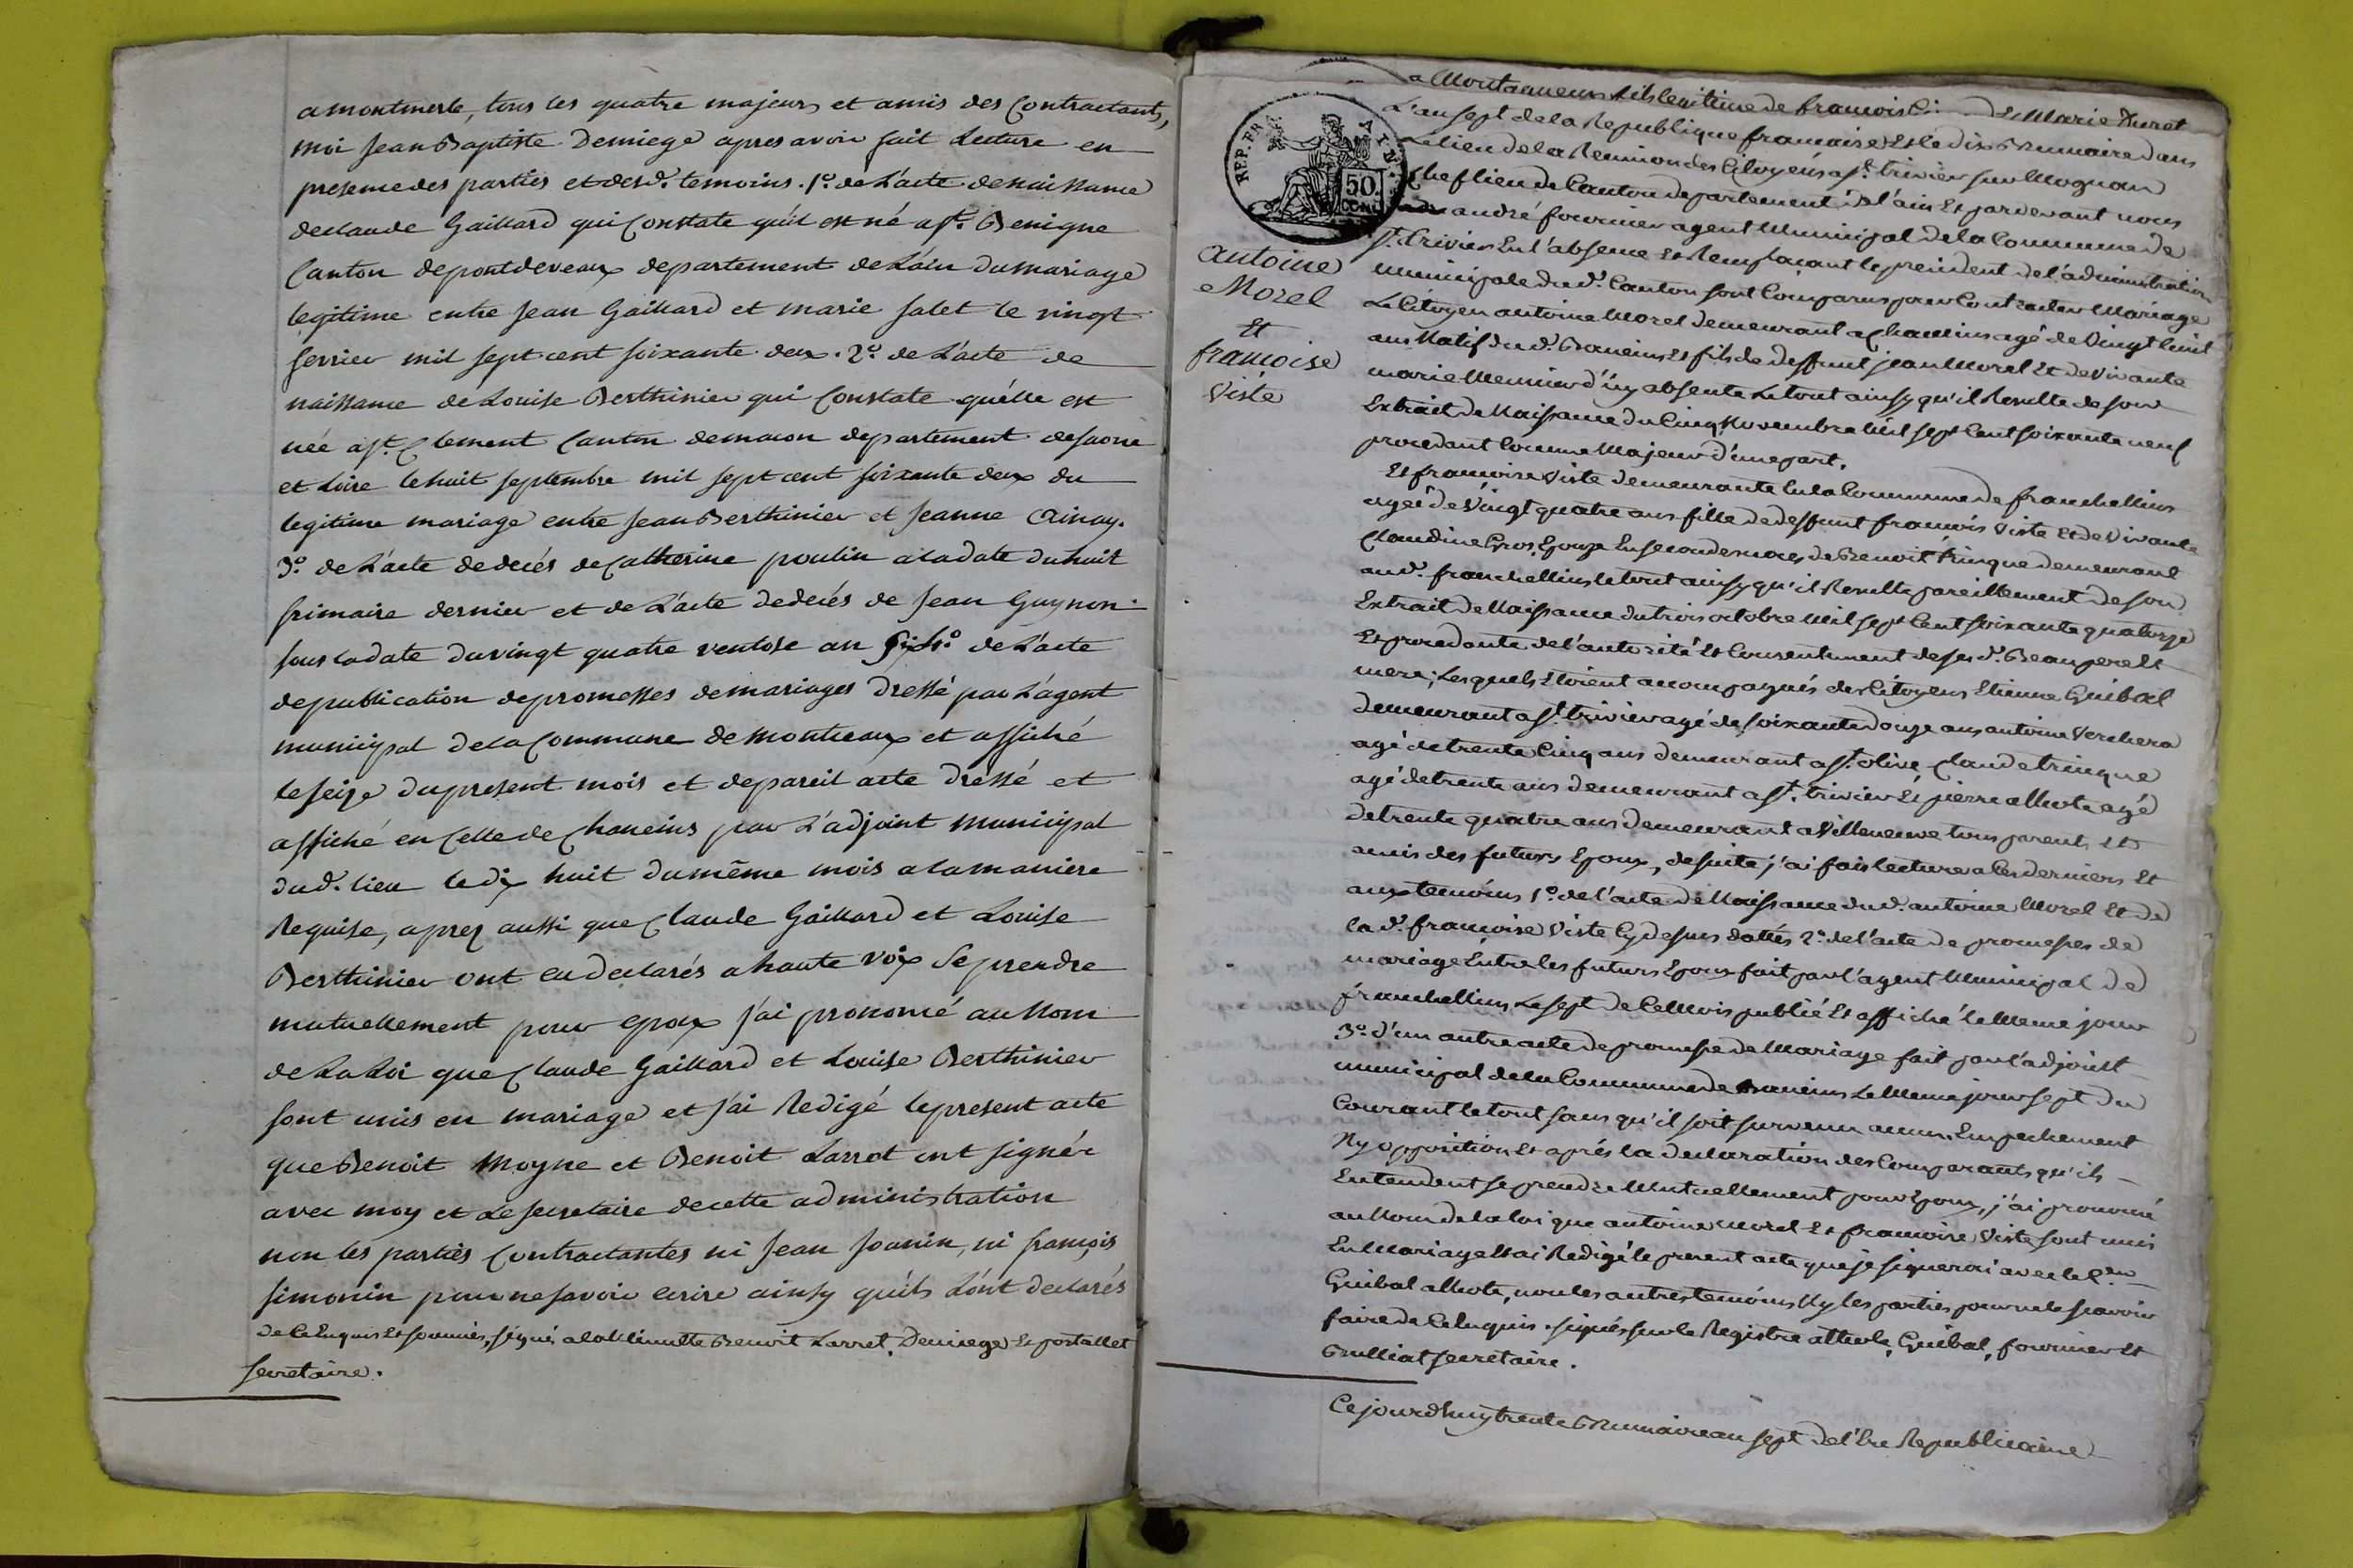 a montmerle, tous les quatre majeurs et amis des Contractants,
moi Jean Baptiste Demiege apres avoir fait Lecture en
presence des parties et desd. temoins. 1º. de L'acte de naissance
de Claude Gaillard qui Constate qu'il est né a St. Benigne
Canton de pontdeveaux departement de L'ain du mariage
legitime entre Jean Gaillard et marie salet le vingt
fevrier mil sept cent soixante deux. 2º. de L'acte de
naissance de Louise Berthinier qui Constate qu'elle est
née a St. Clement Canton de macon departement de saone
et Loire le huit septembre mil sept cent soixante deux du
legitime mariage entre Jean Berthinier et Jeanne
3º. de L'acte de decés de Catherine poulin a la date du huit
frimaire dernier et de L'acte de decés de Jean Guynon
sous la date du vingt quatre ventose an 4º. de L'acte
de publication de promesses de mariages dressé par L'agent
municipal de la Commune de montceaux et affiché
le seize du present mois et de pareil acte dressé et
affiché en Celle de Chaneins par L'adjoint municipal
dud. lieu le dix huit du même mois a la maniere
Requise, aprez aussi que Claude Gaillard et Louise
Berthinier ont eu declarés a haute voix se prendre
mutuellement pour epoux j'ai prononcé au Nom
de La Loi que Claude Gaillard et Louise Berthinier
sont unis en mariage et j'ai Redigé le present acte
que Benoit Moyne et Benoit Larret ont signér
avec moy et Le secretaire de cette administration
non les parties Contractantes ni Jean Joanin, ni françois
simonin pour ne savoir ecrire ainsy qu'ils L'ont declarés
de Ce Enquis et sommés, signé a la Minutte Benoit Larret, Demiege et portallet
secretaire.
a Montanneux fils legitime de francois Et Marie Duret
L'an sept de la Republique francaise Et le dix Brumaire dans
Le lieu de la Reunion des Citoyens a St. trivier sur Moignan
Chef lieu de Canton departement de l'ain Et pardevant nous
andré fournier agent Municipal de la Commune de
St. trivier En l'absence Et Remplacant le president de l'administration
municipale dud. Canton sont Comparus pour Contracter Mariage
Le Citoyen antoine Morel demeurant a Chaneins agé de Vingt huit
ans Natif dud. Baneins Et fils de deffunt jean Morel Et de Vivante
marie Meunier d'icy absente Le tout ainsy qu'il Resulte de son
Extrait de Naissance du Cinq Novembre Mil sept Cent soixante neuf
procedant Comme Majeur d'une part.
Et francoise Viste demeurante En la Commune de francheleins
agée de Vingt quatre ans fille de deffunt francois Viste Et de Vivante
Claudine Gros Epouze En secondes noces de Benoit Trinque demeurant
aud. franchellins le tout ainsy qu'il Resulte pareillement de son
Extrait de Naissance du trois octobre Mil sept Cent soixante quatorze
Et procedante de l'autorité Et Consentement de ses d. Beaupere Et
mere; Lesquels Etoient accompagnés des Citoyens Etienne Guibal
demeurant a St. trivier agé de soixante douze ans antoine Verchera
agé de trente Cinq ans demeurant a St. olive Claude trinque
agé de trente ans demeurant a St. trivier Et pierre alhote agé
de trente quatre ans demeurant a Villeneuve tous parents Et
amis des futurs Epoux, de suite j'ai fais lecture a Ces derniers Et
aux temoins 1º. de l'acte de Naissance dud. antoine Morel Et de
la d. francoise Viste Cy dessus dattés 2º. de l'acte de promesses de
mariage Entre les futurs Epoux fait par l'agent Municipal de
franchellins Le sept de Ce Mois publié Et affiché le Meme jour
3º. d'un autre acte de promesse de Mariage fait par l'adjoint
municipal de la Commune de Baneins Le Meme jour sept du
Courant le tout sans qu'il soit survenu aucun Empechement
Ny opposition Et aprés la declaration des Comparants qu'ils
Entendent se prendre Mutuellement pour Epoux, j'ai prononcé
au Nom de la loi que antoine Morel Et francoise Viste sont unis
En Mariage Et ai Redigé le present acte que je signerai avec le C.en
Guibal alhote, non les autres temoins Ny les parties pour ne le scavoir
faire de Ce Enquis. signés sur le Registre Guibal, fournier Et
Brulliat secretaire.
Ce jourdhuy trente Brumaire an sept de l'Ere Republicaine
antoine
Morel
Et
francoise
Viste
REP. FRA
50.
CENT